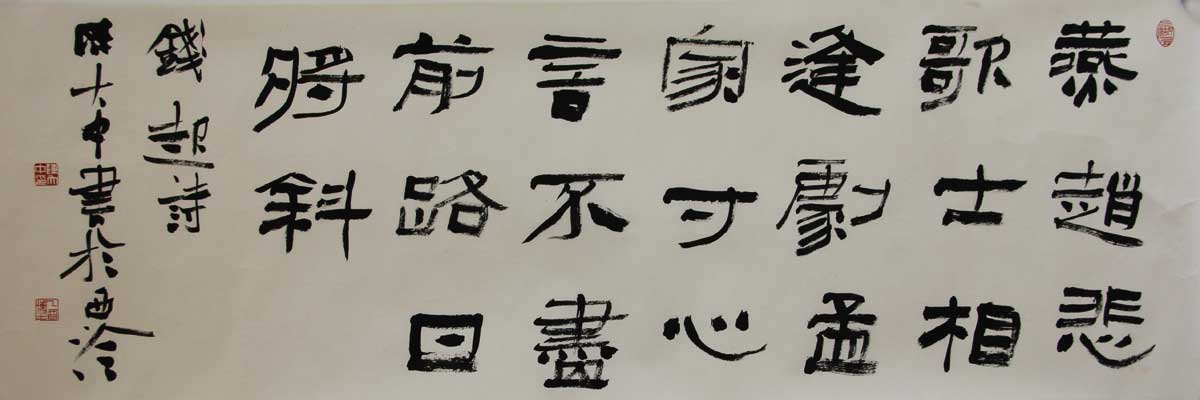 燕趙悲
歌士相
逢劇孟
家寸心
言不盡
前路日
將斜
錢起詩
陳大中書於西泠